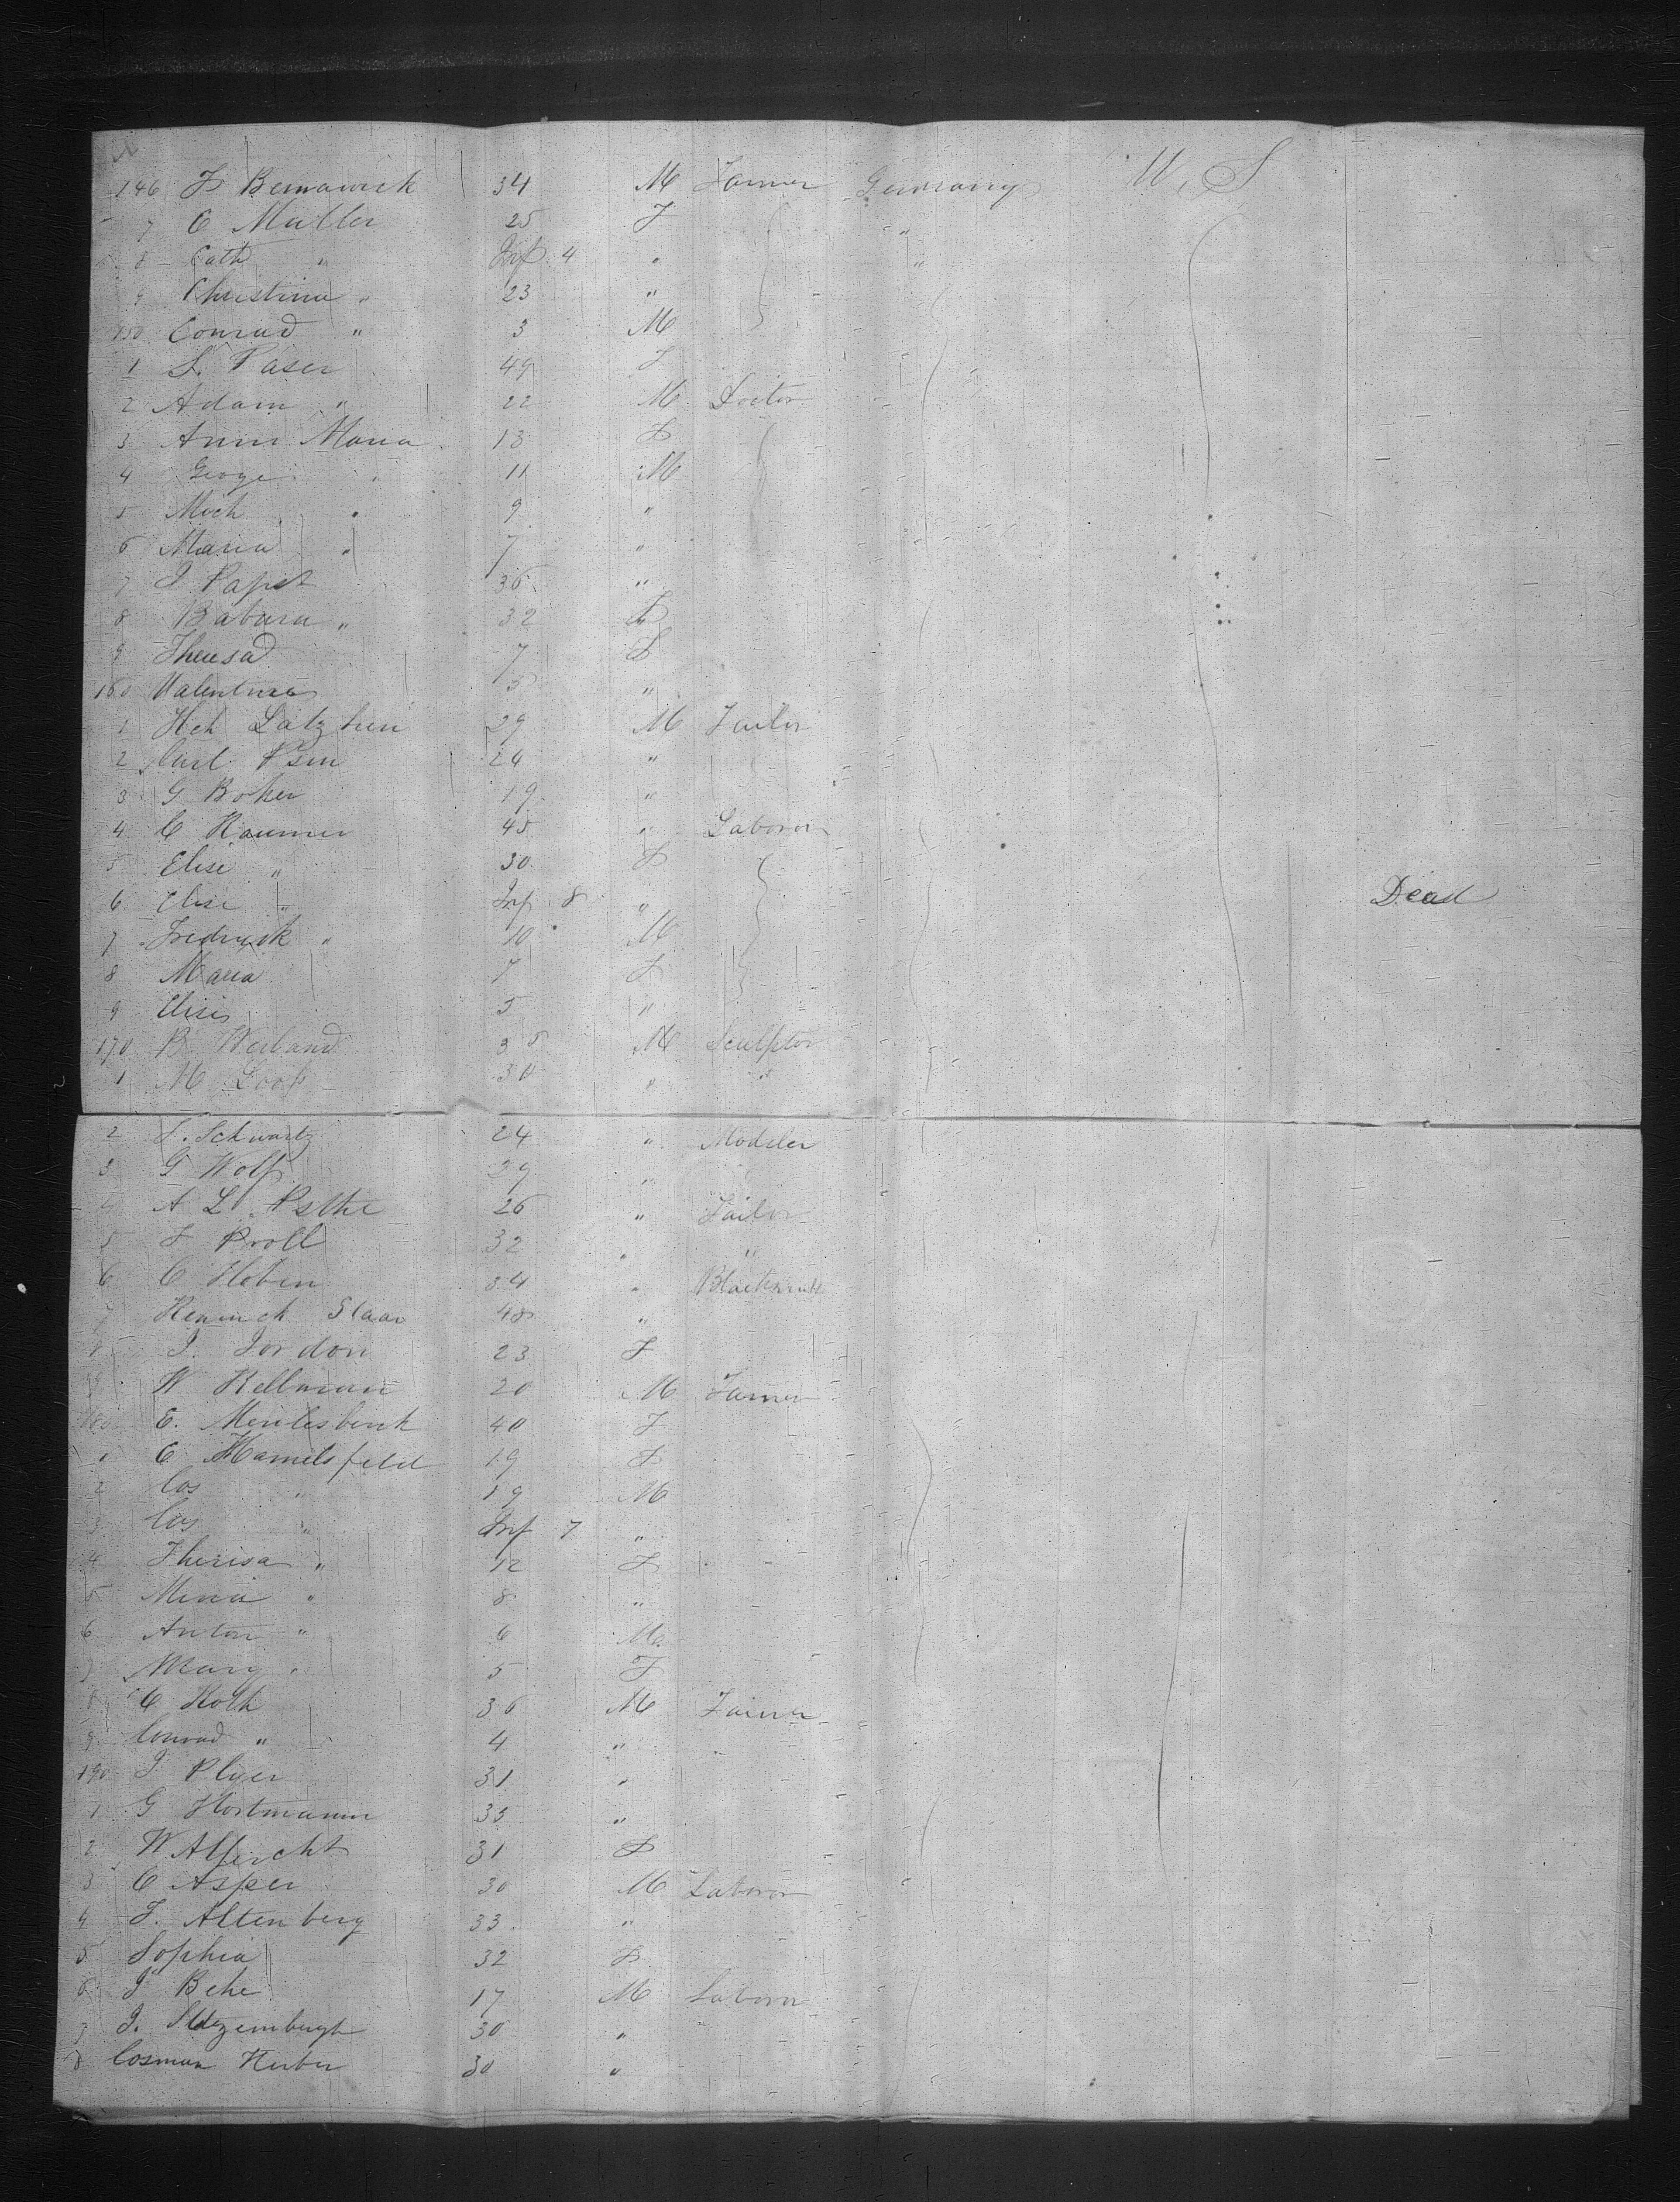 146 F Bernawick 34 M Farmer Germany U, S
7 C Muller 25 F "
8 Cath " Inf 4 " "
9 Christina " 23 "
150 Conrad " 3 M
1 S. Paser 49 F
2 Adam " 22 M Doctor
3 Ann Maria 13 F
4 George " 11 M
5 Mich " 9 "
6 Maria " 7 "
7 J Papst 36 "
8 Babara " 32 F
9 Theresa 7 F
160 Valentine 5 "
1 Hch Latzhen 29 M Tailor
2 Carl 24 "
3 G Boher 19 "
4 C Raumer 45 " Laboror
5 Elise " 30 F
6 Elise " Inf 8 " Dead
7 Fredrick " 10 M
8 Maria 7 F
9 Elise 5 "
170 B Weiland 35 M Sculptor
1 M Loof 30 " "
2 S. Schwartz 24 " Modeler
3 G Wolf 29 "
4 A L 26 " Tailor
5 F Proll 32 " "
6 C Heben 34 " Blacksmith
7 Heinrich Slaar 48 "
8 J. Jordon 23 F
9 W Kellmann 20 M Farmer
180 E. Mentesbenk 40 F
1 C Hamelsfeld 19 F
2 Cos " 19 M
3 Cos " Inf 7 "
4 Therisa " 12 F
5 Mina " 8 "
6 Anton " 6 Ma
7 Mary " 5 F
8 C Koth 36 M Farmer
9 Conrad " 4 "
190 J Plyer 31 "
1 G Hortmann 35 "
2 W Alfercht 31 F
3 C Asper 30 M Laboror
4 F. Altenberg 33 "
5 Sophia 32 F
6 J Behe 17 M Laboror
7 J. 30 "
8 Cosman Herber 30 "